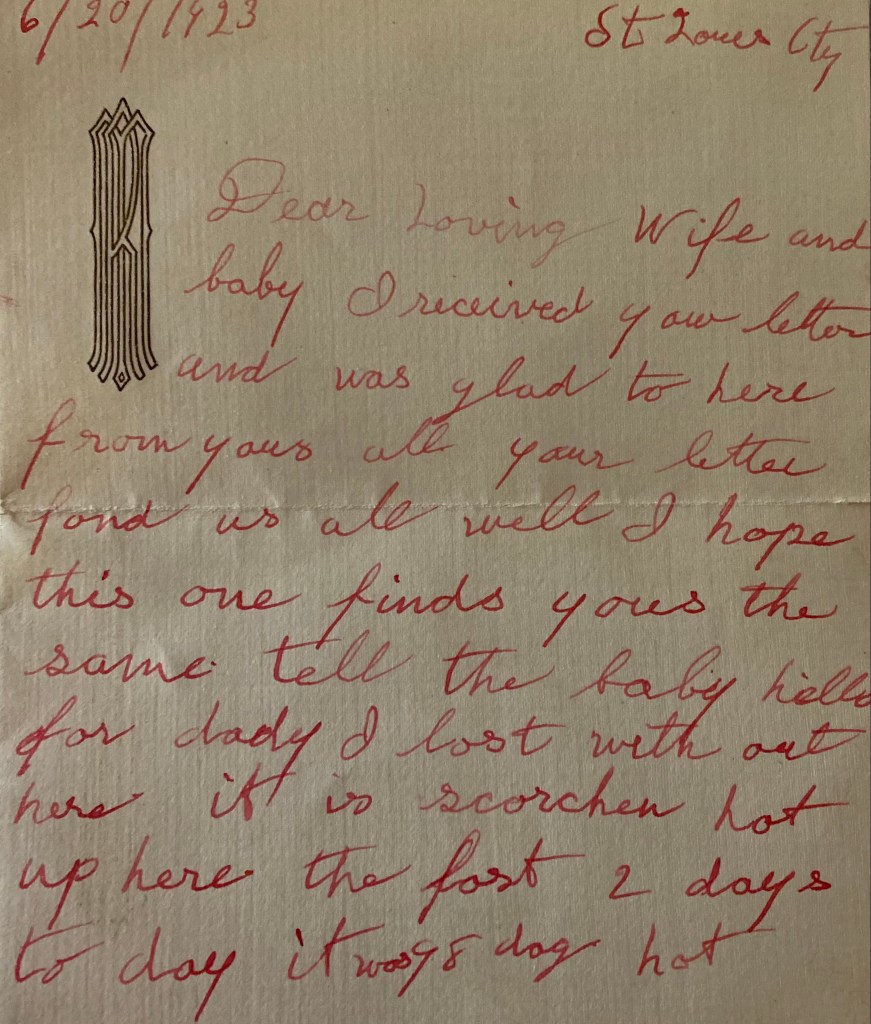 6/20/1923 St Loues Cty
Dear Loving Wife and
baby I received your letter
and was glad to here
from yous all your letter
fond us all well I hope
this one finds yous the
same tell the baby hello
for dady I lost with out
here it is scorchen hot
up here the fast 2 days
to day it was 98 dag hot